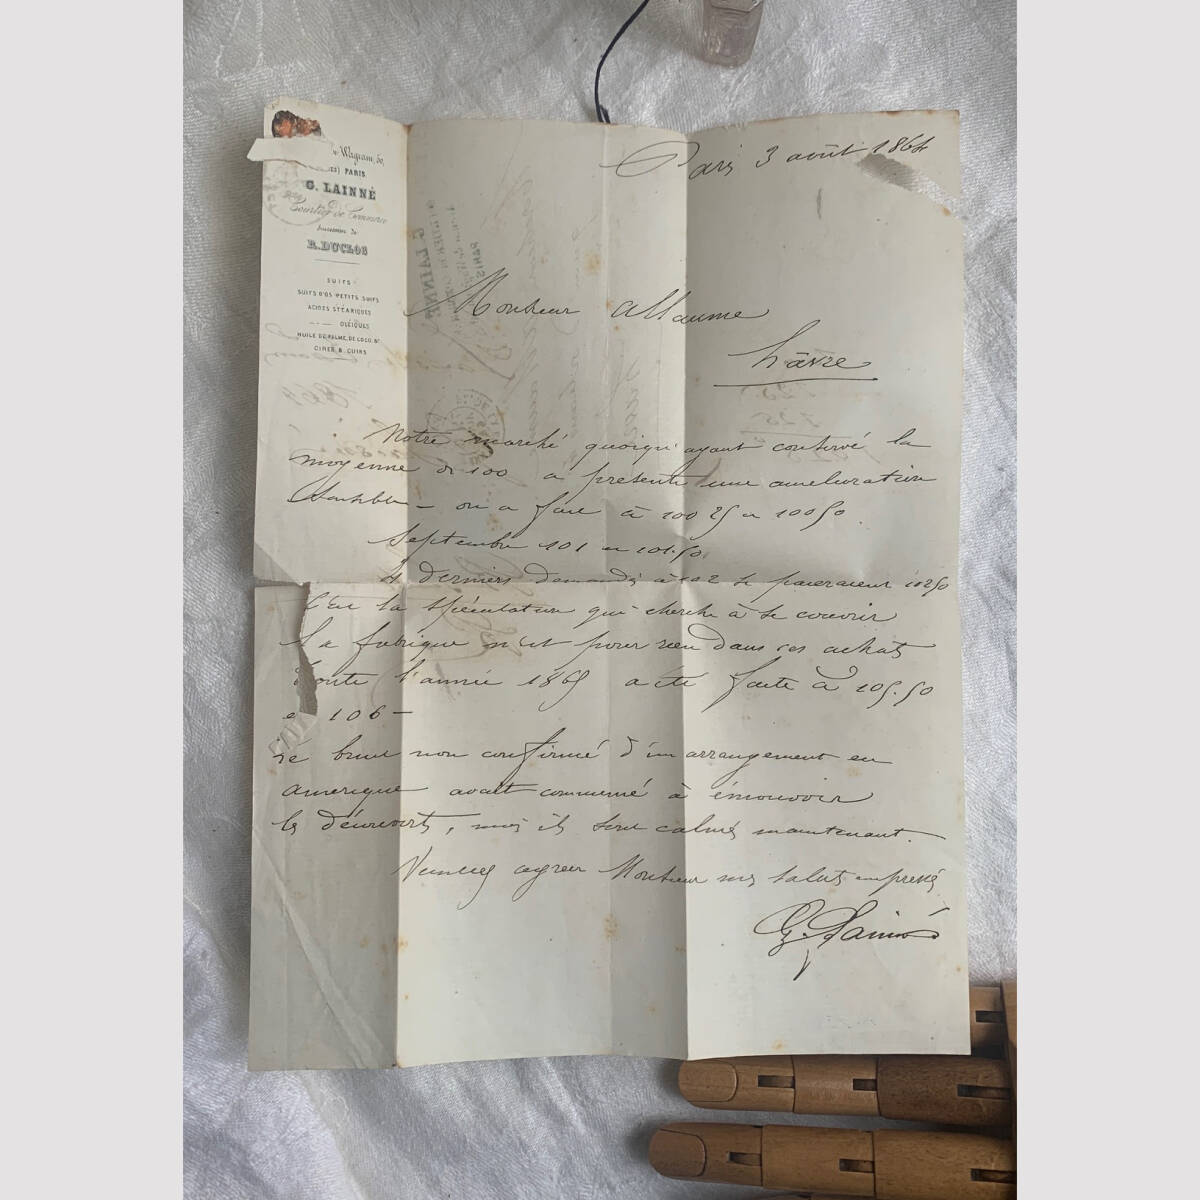 Wagram, 50,
PARIS
G. LAINNÉ
Courtier de Commerce
Successeur de
R. DUCLOS
SUIFS
SUIFS D'OS PETITS SUIFS
ACIDES STÉARIQUES
OLÉIQUES
HUILE DE PALME, DE COCO, &c
CIRES & CUIRS
Paris 3 août 1864
Monsieur Allaume
hâvre
Notre marché quoiqu'ayant conservé la
moyenne de 100 a présenté une amelioration
sensible — on a fait à 100 25 et 100 50.
Septembre 101 et 101.50.
4 derniers demandés à 102 se paieraient 10250
C'est la spéculation qui cherche à se couvrir
La fabrique n'est pour rien dans ces achats
Toute l'année 1865 a été faite à 105.50
et 106 —
Le bruit non confirmé d'un arrangement en
amerique avait commencé à émouvoir
les découverts, mais ils sont calmés maintenant.
Veuillez agréer Monsieur mes saluts empressés
G. Lainné